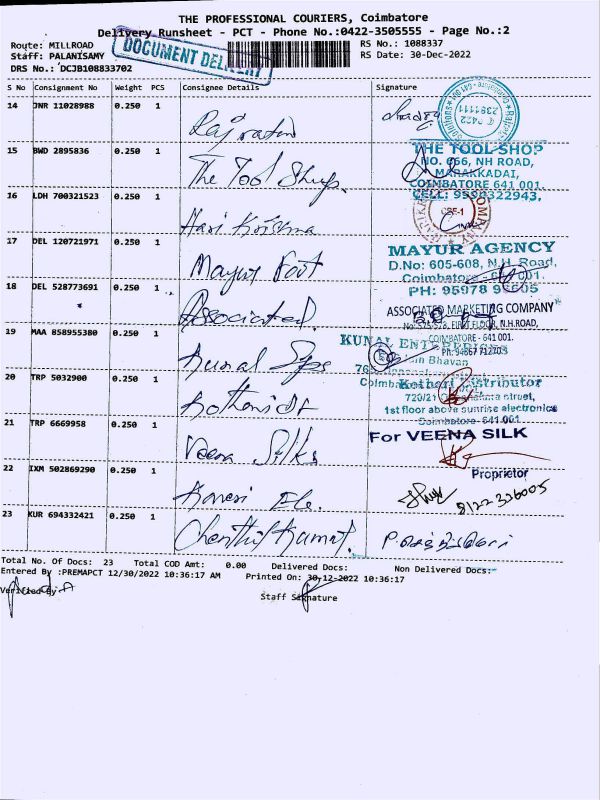 THE PROFESSIONAL COURIERS, Coimbatore
Delivery Runsheet - PCT - Phone No.:0422-3505555 - Page No.:2
Route: MILLROAD
Staff: PALANISAMY
DRS No.: DCJB108833702
DOCUMENT DELIVERY
RS No.: 1088337
RS Date: 30-Dec-2022
S No Consignment No Weight PCS Consignee Details Signature
14 JNR 11028988 0.250 1
15 BWD 2895836 0.250 1 The Tool Shop.
THE TOOL SHOP
NO. 666, NH ROAD,
MARAKKADAI,
COIMBATORE 641 001.
CELL: 9594322943.
16 LDH 700321523 0.250 1 Hari Krishna
CBE-1
17 DEL 120721971 0.250 1 Mayur Foot
MAYUR AGENCY
D.No: 605-608, N.H. Road,
Coimbatore 001.
PH: 95978
18 DEL 528773691 0.250 1 Associated.
ASSOCIATED MARKETING COMPANY
FIRST FLOOR, N.H.ROAD,
COIMBATORE - 641 001.
19 MAA 858955380 0.250 1 Kunal
KUNAL ENTERPRISES
Bhavan
20 TRP 5032900 0.250 1 Kothari Dr
Kothari Distributor
720/21 street,
1st floor above sunrise electronics
Coimbatore-641 001
21 TRP 6669958 0.250 1 Veena Silks
For VEENA SILK
Proprietor
22 IXM 502869290 0.250 1 Kaveri Ele.
9122 336005
23 KUR 694332421 0.250 1 Chenthil Kumar.
Total No. Of Docs: 23 Total COD Amt: 0.00 Delivered Docs: Non Delivered Docs:
Entered By :PREMAPCT 12/30/2022 10:36:17 AM Printed On: 30-12-2022 10:36:17
Verified By
Staff Signature